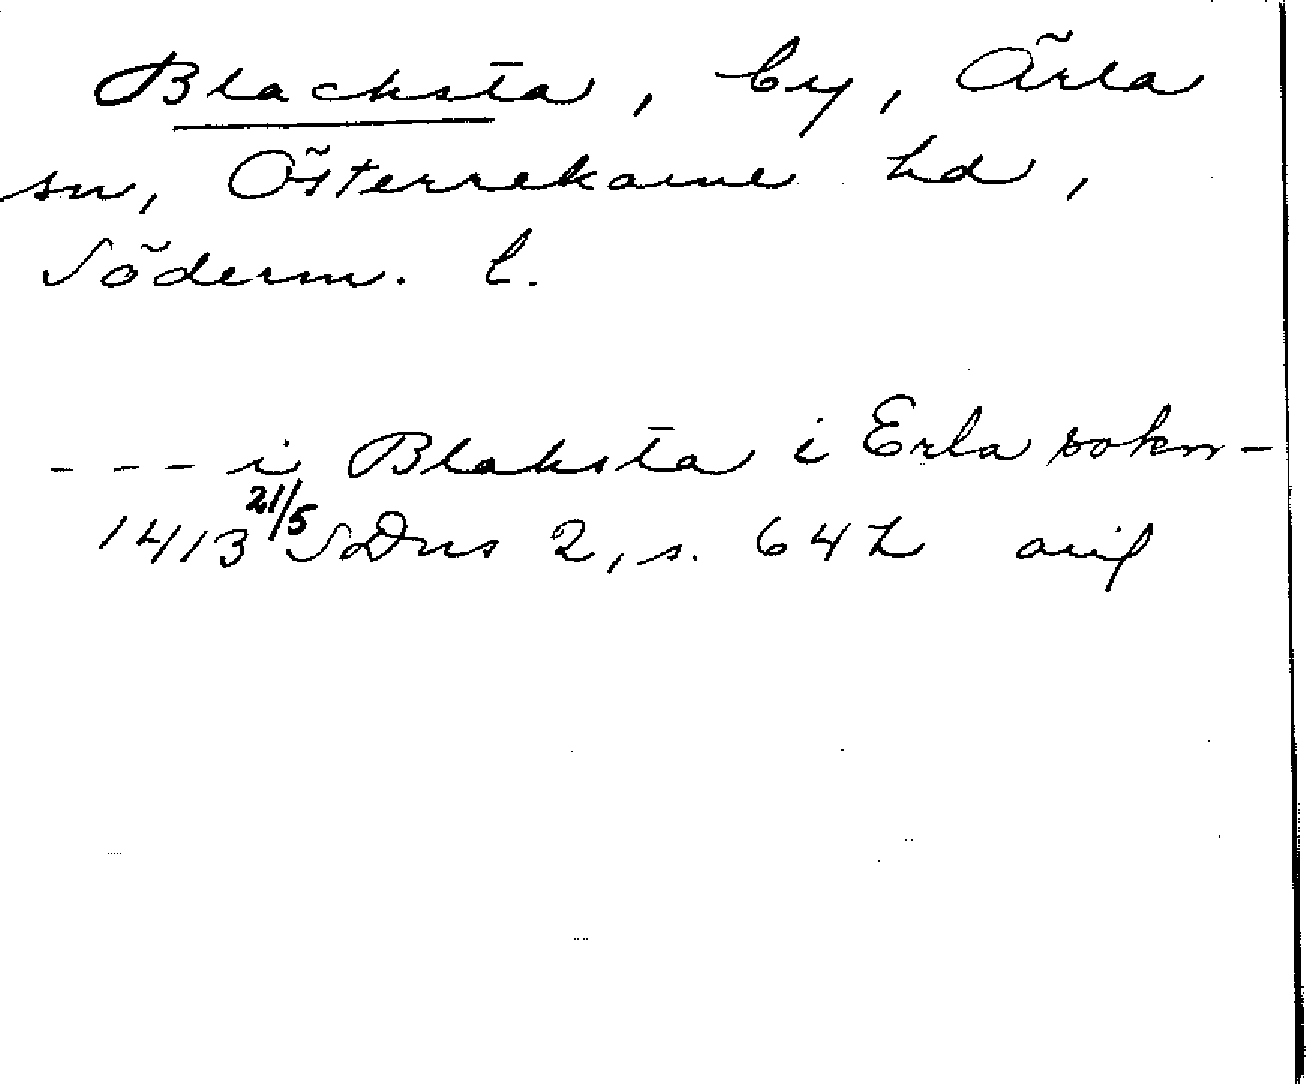 Blacksta, by, Ärla
sn, Österrekarne hd,
Söderm. l.
- - - i Blaksta i Erla sokn -
1413 21/5 SDns 2, s. 642 avif